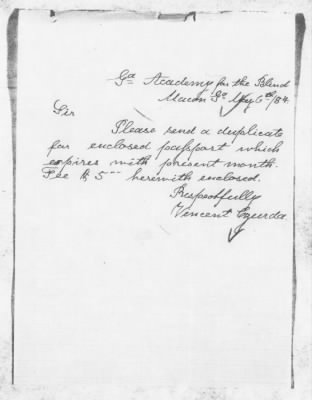 Ga Academy for the Blind
Macon Ga May 6th/84.
Sir
Please send a duplicate
for enclosed passport which
expires with present month.
Fee $5 herewith enclosed.
Respectfully
Vincent Czurda